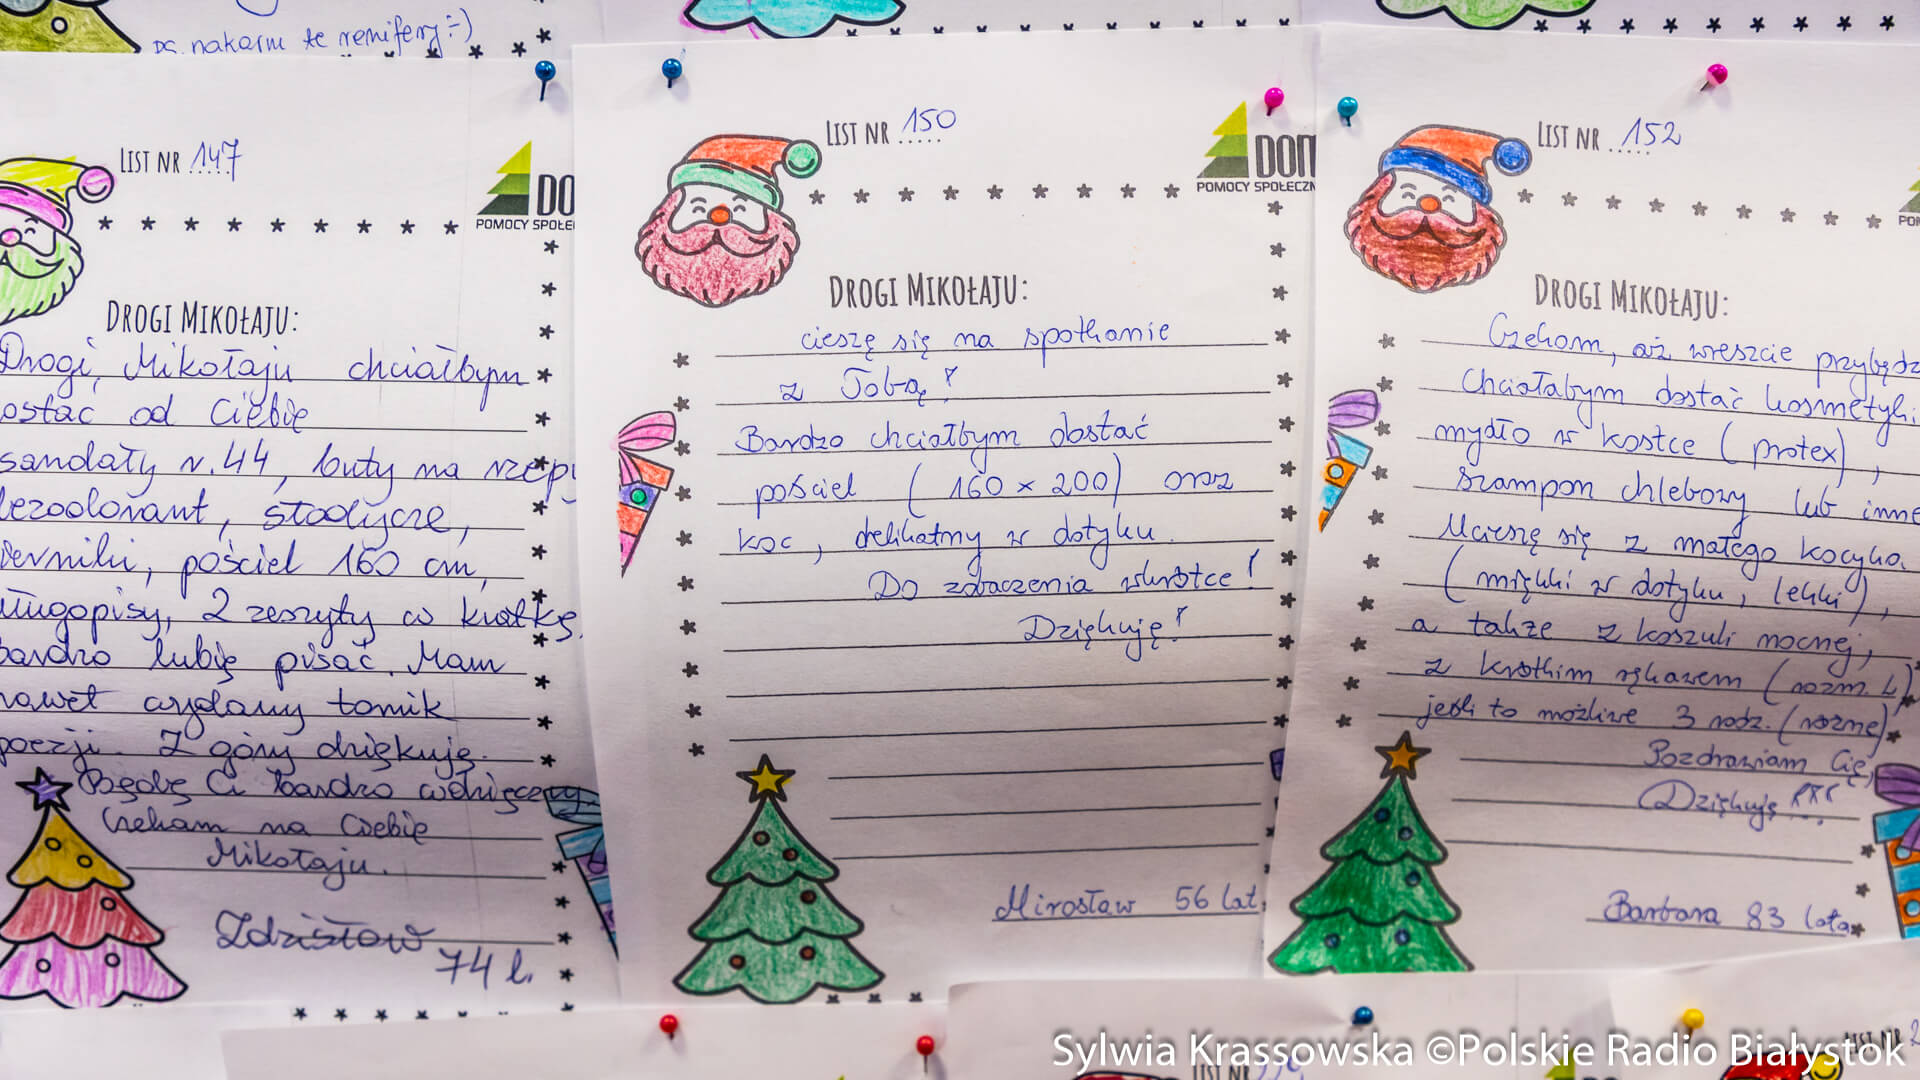 nakarm te renifery :-)
LIST NR 147
DO
POMOCY SPOŁE
DROGI MIKOŁAJU:
Drogi, Mikołaju chciałbym
ostać od Ciebie
sandały n. 44, buty na rzepy
dezodorant, słodycze,
pierniki, pościel 160 cm,
długopisy, 2 zeszyty w kratkę,
bardzo lubię pisać. Mam
nawet wydany tomik
poezji. Z góry dziękuję.
Będę Ci bardzo wdzięczny.
Czekam na Ciebie
Mikołaju.
Zdzisław
74 l.
LIST NR 150
DOM
POMOCY SPOŁECZN
DROGI MIKOŁAJU:
cieszę się na spotkanie
z Tobą!
Bardzo chciałbym dostać
pościel (160 x 200) oraz
koc, delikatny w dotyku.
Do zobaczenia wkrótce!
Dziękuję!
Mirosław 56 lat
LIST NR 152
DROGI MIKOŁAJU:
Czekam, aż wreszcie przybędz
Chciałabym dostać kosmetyki:
mydło w kostce (protex),
szampon chlebowy lub inne
Ucieszę się z małego kocyka.
(miękki w dotyku, lekki),
a także z koszuli nocnej,
z krótkim rękawem (rozm. L)
jeśli to możliwe 3 rodz. (różne)
Pozdrawiam Cię,
Dziękuję!!!
Barbara 83 lata
LIST NR
LIST NR 2
Sylwia Krassowska ©Polskie Radio Białystok